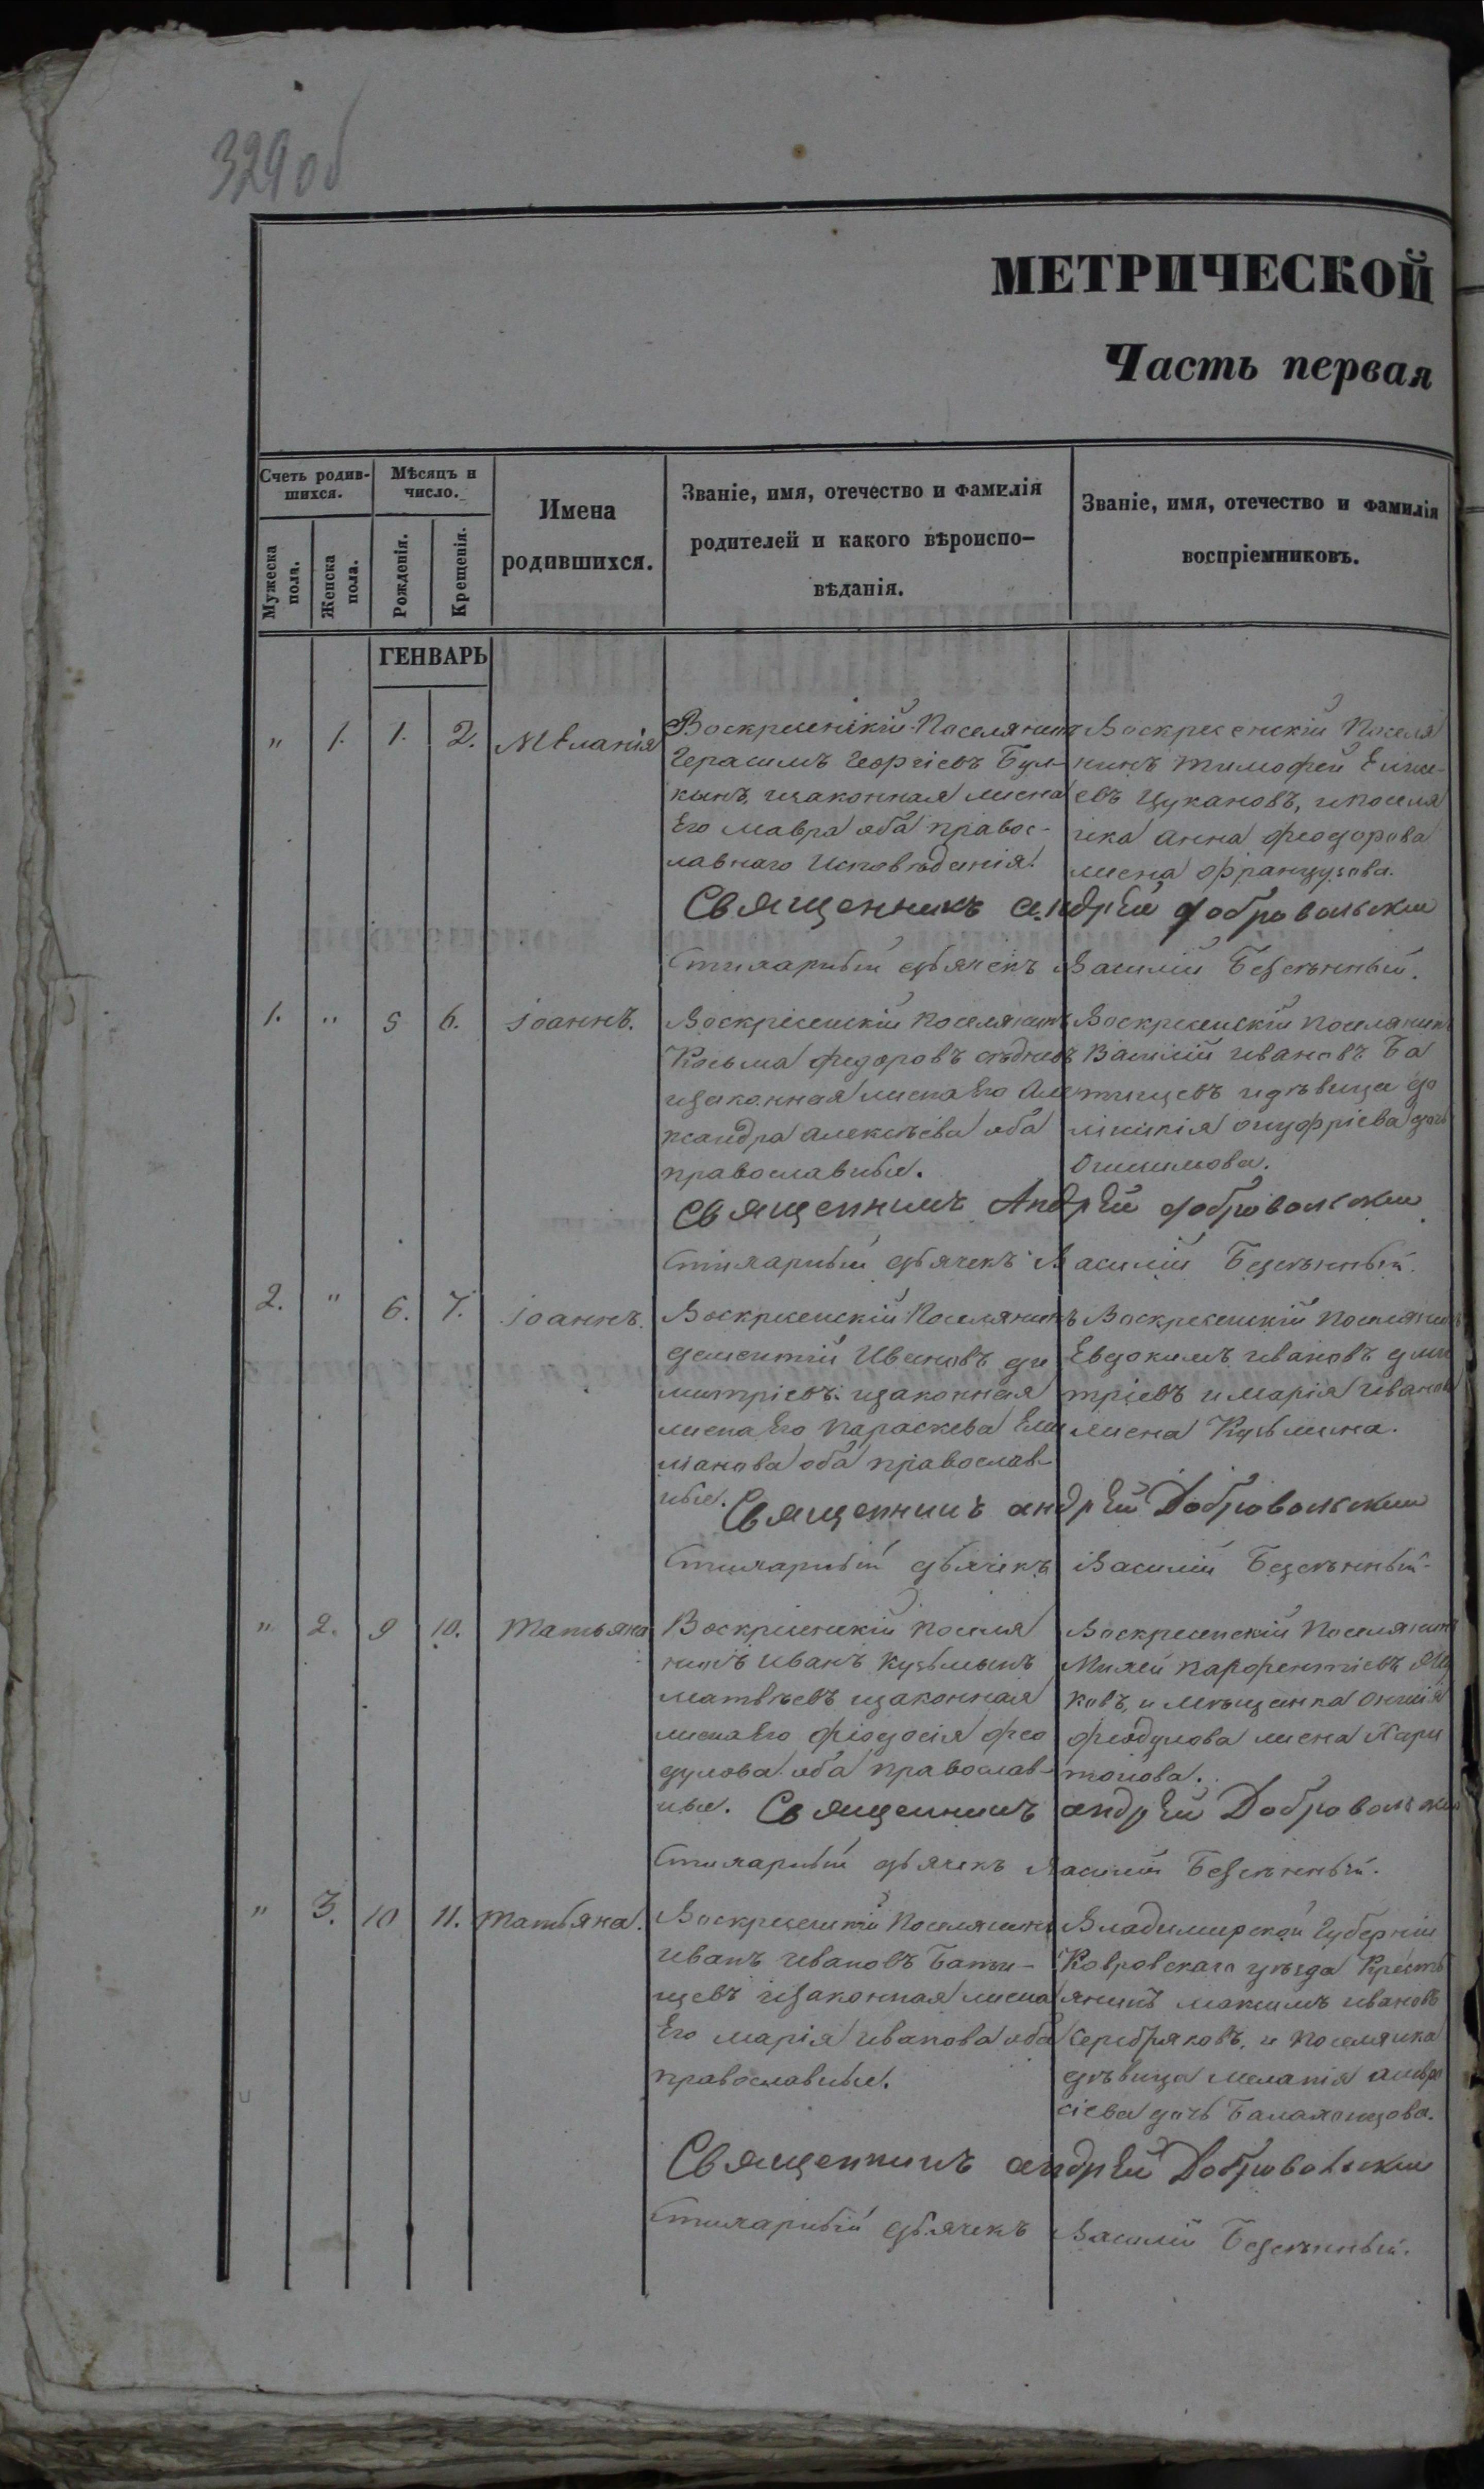 329 об
МЕТРИЧЕСКОЙ
Часть первая
Счетъ родив-
шихся.
Мѣсяцъ и
число.
Имена
родившихся.
Званіе, имя, отечество и фамилія
родителей и какого вѣроиспо-
вѣданія.
Званіе, имя, отечество и фамилія
воспріемниковъ.
Мужеска
пола.
Женска
пола.
Рожденія.
Крещенія.
ГЕНВАРЬ
" 1. 1. 2. Меланія
Воскресенскій Поселянинъ
Герасимъ Георгіевъ
изаконная жена
Его Мавра оба правос-
лавнаго Исповѣданія.
Воскресенскій Поселя
нинъ Тимофей Елисе-
евъ Цукановъ, и посел
нка Анна Феодорова
жена Французова.
Священникъ Андрей Добровольскій
Стихарный дьячекъ Василій Безсѣнный.
1. " 5 6. Іоаннъ.
Воскресенскій Поселянинъ
Козьма Федоровъ
изаконная жена Его Але
ксандра Алексѣева оба
православные.
Воскресенскій Поселянинъ
Василій Ивановъ Ба
тищевъ идѣвица
Онуфріева дочь
Онисимова.
Священникъ Андрей Добровольскій
Стихарный дьячекъ Василій Безсѣнный.
2. " 6. 7. Іоаннъ.
Воскресенскій Поселянинъ
Дементій Ивановъ Ди
митріевъ изаконная
жена Его Параскева Еми
ліанова оба православ-
ные.
Воскресенскій Поселянинъ
Евдокимъ Ивановъ Дми
тріевъ и Марія Иванова
жена Кузьмина.
Священникъ Андрей Добровольскій
Стихарный дьячекъ Василій Безсѣнный.
" 2. 9 10. Татьяна
Воскресенскій Поселя
нинъ Иванъ Кузьминъ
Матвѣевъ изаконная
жена Его Феодосія Фео
дулова оба православ-
ные.
Воскресенскій Поселянинъ
Парфентіевъ
ковъ, и Мѣщанка
Феодулова жена Хари
тонова.
Священникъ Андрей Добровольскій
Стихарный дьячекъ Василій Безсѣнный.
" 3. 10 11. Татьяна.
Воскресенскій Поселянинъ
Иванъ Ивановъ Бати-
щевъ изаконная жена
Его Марія Иванова оба
православные.
Владимирской Губерніи
Ковровскаго уѣзда Кресть
янинъ Максимъ Ивановъ
Серебряковъ, и Поселянка
дѣвица Меланія Амвро
сіева дочь
Священникъ Андрей Добровольскій
Стихарный дьячекъ Василій Безсѣнный.